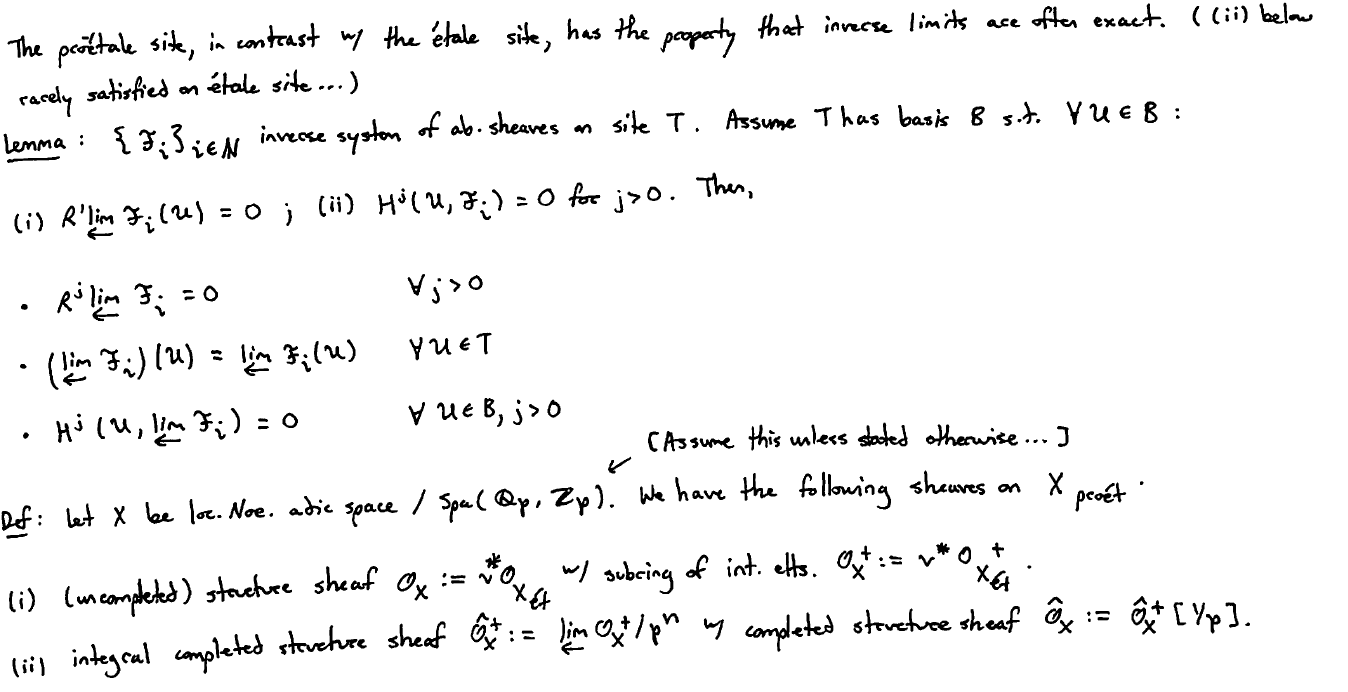 The proétale site, in contrast w/ the étale site, has the property that inverse limits are often exact. ((ii) below
rarely satisfied on étale site...)
Lemma: {ℱ_i}_{i∈N} inverse system of ab. sheaves on site T. Assume T has basis B s.t. ∀ U ∈ B :
(i) R'lim← ℱ_i(U) = 0 ; (ii) H^j(U, ℱ_i) = 0 for j>0. Then,
• R^j lim← ℱ_i = 0 ∀ j>0
• (lim← ℱ_i)(U) = lim← ℱ_i(U) ∀ U ∈ T
• H^j(U, lim← ℱ_i) = 0 ∀ U ∈ B, j>0
[Assume this unless stated otherwise...]
Def: Let X be loc. Noe. adic space / Spa(ℚp, ℤp). We have the following sheaves on X_proét.
(i) (uncompleted) structure sheaf O_X := ν* O_{X_ét} w/ subring of int. elts. O_X^+ := ν* O_{X_ét}^+.
(ii) integral completed structure sheaf Ô_X^+ := lim← O_X^+/p^n w/ completed structure sheaf Ô_X := Ô_X^+[1/p].